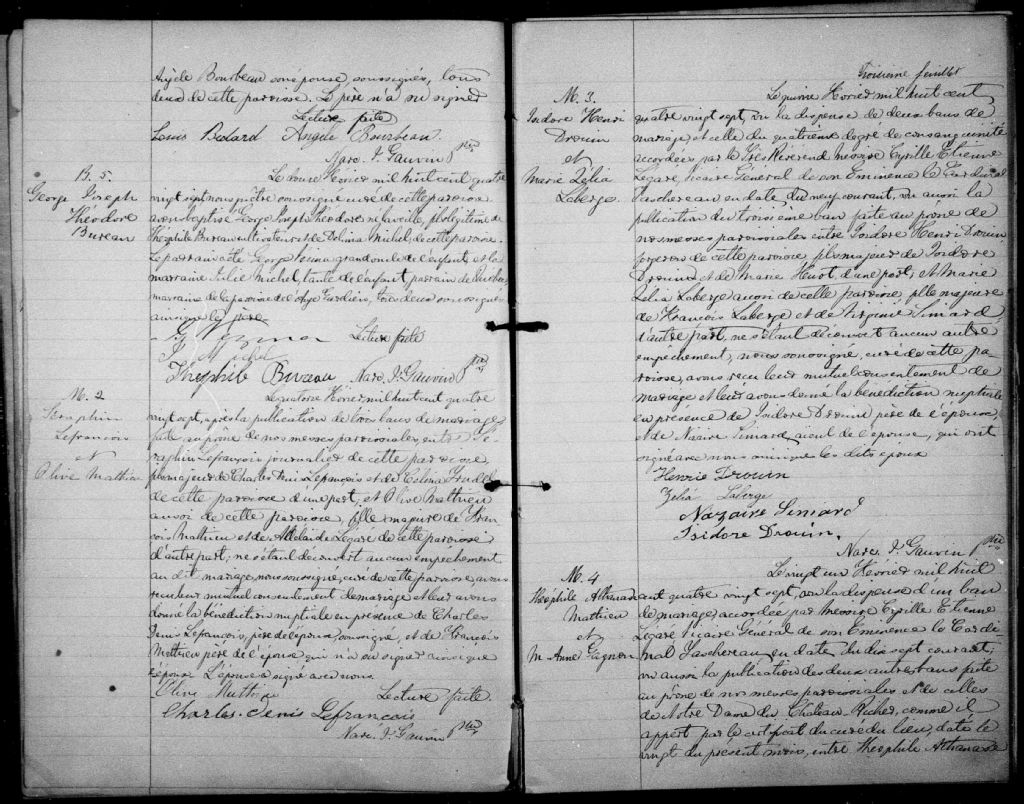 Angèle Bourbeau son épouse, soussignés, tous
deux de cette paroisse. Le père n'a su signer
Lecture faite
Louis Bedard Angèle Bourbeau
Narc. J. Gauvin Ptre
B. 5.
George Joseph
Théodore
Bureau
Le douze Février mil huit cent quatre
vingt sept nous prêtre soussigné curé de cette paroisse
avons baptisé George Joseph Théodore né la veille, fils légitime de
Théophile Bureau cultivateur et de Delima Michel de cette paroisse.
Le parrain a été George Vézina grand oncle de l'enfant et la
marraine Julie Michel, tante de l'enfant, parrain de
marraine de la paroisse de l'Ange Gardien, tous deux soussignés
ainsi que le père
G Vezina Lecture faite
J Michel
Théophile Bureau Narc. J. Gauvin Ptre
M. 2
Séraphin
Lefrancois
et
Olive Mathieu
Le quatorze Février mil huit cent quatre
vingt sept, après la publication de trois bans de mariage
faite au prône de nos messes paroissiales, entre Sé-
raphin Lefrançois journalier de cette paroisse,
fils majeur de Charles Denis Lefrançois et de Célina Trudel
de cette paroisse d'une part, et Olive Mathieu
aussi de cette paroisse, fille majeure de Fran
çois Mathieu et de Adélaide Légaré de cette paroisse
d'autre part; ne s'étant découvert aucun empêchement
au dit mariage, nous soussigné, curé de cette paroisse, avons
reçu leur mutuel consentement de mariage et leur avons
donné la bénédiction nuptiale en présence de Charles
Denis Lefrançois, père de l'époux, soussigné, et de François
Mathieu père de l'épouse qui n'a su signer ainsi que
l'époux. L'épouse a signé avec nous.
Olive Mathieu Lecture faite.
Charles-Denis Lefrancois
Narc. J. Gauvin Ptre
Troisième feuillet
M. 3.
Isidore Henri
Drouin
et
Marie Zélia
Laberge
Le quinze Février mil huit cent
quatre vingt sept, vu la dispense de deux bans de
mariage, et celle du quatrième degré de consanguinité
accordées par le Très Révérend Messire Cyrille Etienne
Légaré, Vicaire Général de son Eminence le Cardinal
Taschereau en date du neuf courant, vu aussi la
publication du troisième ban faite au prône de
nos messes paroissiales entre Isidore Henri Drouin
forgeron de cette paroisse fils majeur de Isidore
Drouin et de Marie Huot d'une part, et Marie
Zélia Laberge aussi de cette paroisse, fille majeure
de François Laberge et de Virginie Simard
d'autre part, ne s'étant découvert aucun autre
empêchement, nous soussigné, curé de cette pa-
roisse, avons reçu leur mutuel consentement de
mariage et leur avons donné la bénédiction nuptiale
en présence de Isidore Drouin père de l'époux,
et de Nazaire Simard aïeul de l'épouse, qui ont
signé avec nous ainsi que les dits époux
Henrie Drouin
Zélia Laberge
Nazaire Simard
Isidore Drouin.
Narc. J. Gauvin Ptre
M. 4
Théophile Athanase
Mathieu
et
M. Anne Gagnon
Le vingt un Février mil huit
cent quatre vingt sept, vu la dispense d'un ban
de mariage accordée par Messire Cyrille Etienne
Légaré Vicaire Général de son Eminence le Cardi-
nal Taschereau en date du dix sept courant;
vu aussi la publication des deux autres bans faite
au prône de nos messes paroissiales et de celles
de Notre Dame du Château Richer, comme il
appert par le certificat du curé du lieu, daté le
vingt du présent mois, entre Théophile Athanase